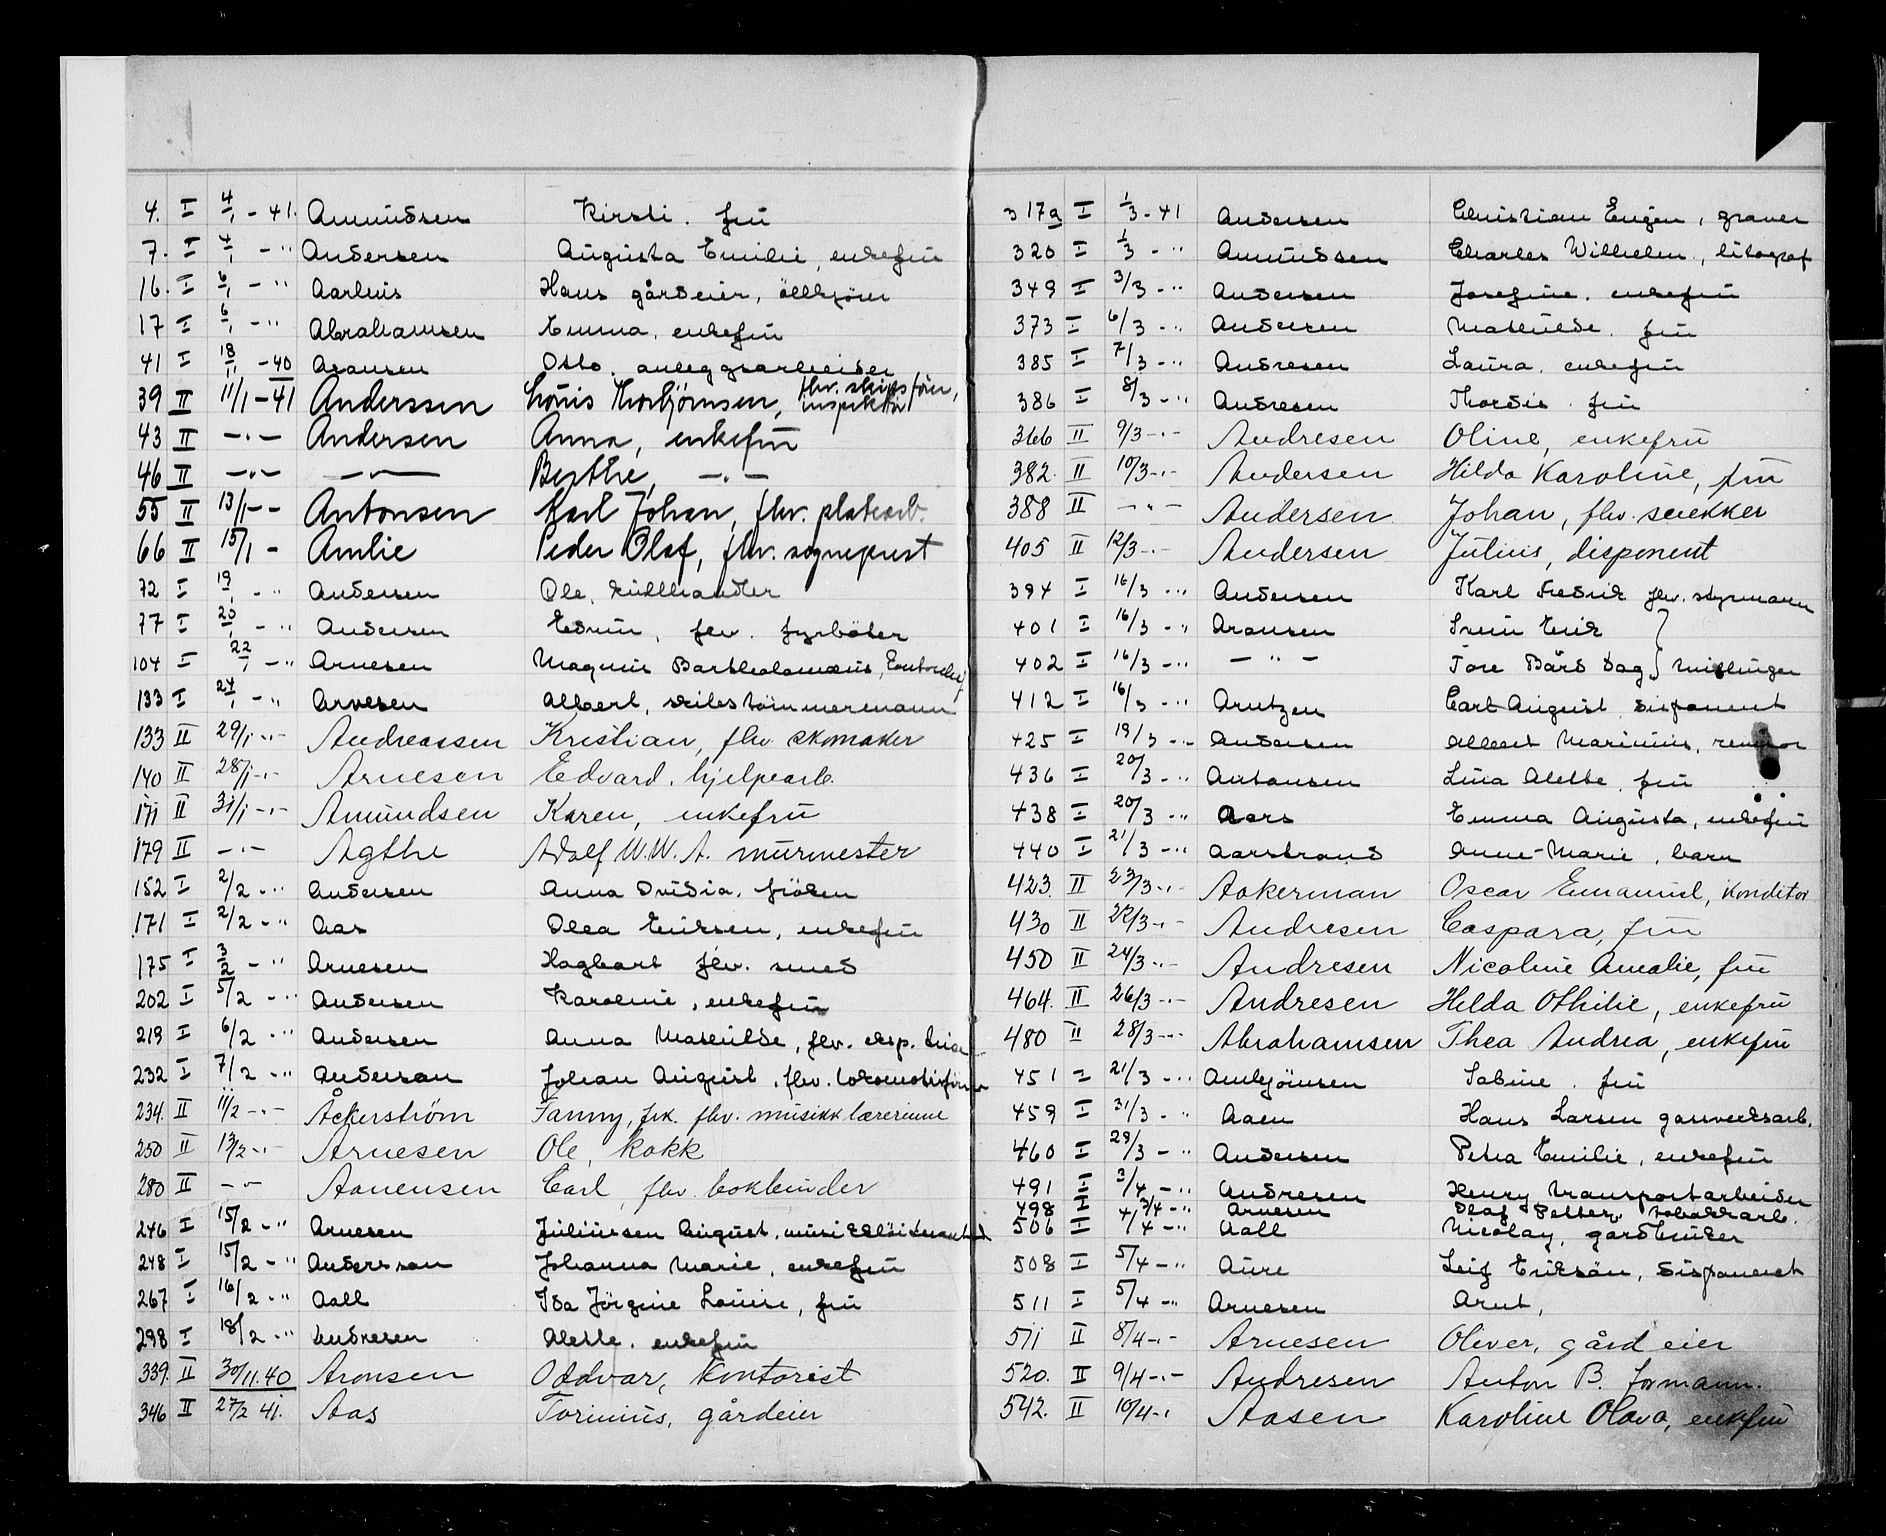 4. I 4/1 - 41. Amundsen Kirsti. frü
7. I 4/1 - " Andersen Augusta Emilie, enkefrü
16. I 6/1 - " Aarhuis Hans gårdeier,
17 I 6/1 - " Abrahamsen Emma, enkefrü
41 I 18/11 - 40 Aronsen Otto, anleggsarbeider
39 II 11/1 - 41 Anderssen Louis Thorbjörnsen, fhv. skipsförer, inspektör
43 II -"- Andersen Anna, enkefrü
46 II -"- -"- Berthe, -"-
55 II 13/1 - - Antonsen Karl Johan, fhv. platearb.
66 II 15/1 - Amlie Peder Olaf, fhv. sogneprest
72 I 19/1 - " Andersen Ole, kullhandler
77 I 20/1 - " Andersen Edvin, fhv. fyrböter
104 I 22/1 - " Arnesen Magnus Bartholomæus, kontorchef
133 I 24/1 - " Arvesen Albert, skibstömmermann
133 II 29/1 -"- Andreassen Kristian, fhv skomaker
140 II 28/1 -"- Arnesen Edvard, hjelpearb.
171 II 31/1 -"- Amundsen Karen, enkefrü
179 II -"- Agthe Adolf W.W.A. mürmester
152 I 2/2 - " Andersen Anna Ovidia, fröken
171 I 2/2 - " Aas Olea Eriksen, enkefrü
175 I 3/2 - " Arnesen Hagbart fhv. smed
202 I 5/2 - " Andersen Karoline, enkefrü
219 I 6/2 - " Andersen Anna Mathilde, fhv. eksp. trice
232 I 7/2 - " Anderson Johan August, fhv. lokomotivförer
234. II 11/2 -"- Åckerström Fanny, frk. fhv. musikklærerinne
250 II 13/2 -"- Arnesen Ole, kokk
280 II - " - Aanensen Carl, fhv. bokbinder
246 I 15/2 - " Arnesen Juliüsen August,
248 I 15/2 - " Andersson Johanna Marie, enkefrü
267 I 16/2 - " Aall Ida Jörgine Louise, frü
298 I 18/2 - " Andresen Alette, enkefrü
339. II 30/11. 40 Aronsen Oddvar, kontorist
346 II 27/2 41. Aas Torinius, gårdeier
317a I 1/3 - 41 Andersen Christian Eugen, graver
320 I 1/3 - " Amundsen Charles Wilhelm, litograf
349 I 3/3 - " Andersen Josefine, enkefrü
373 I 6/3 - " Andersen Mathilde, frü
385 I 7/3 - " Andresen Laura, enkefrü
386 I 8/3 - " Andresen Thordis, frü
366 II 9/3 -"- Andresen Oline, enkefrü
382. II 10/3 -"- Andersen Hilda Karoline, frü
388 II - " - Andersen Johan, fhv. snekker
405 II 12/3 -"- Andersen Julius, disponent
394 I 16/3 - " Andersen Karl Fredrik fhv. styrmann
401 I 16/3 - " Aronsen Svein Erik
402 I 16/3 - " - " - Tore Bård Dag } tvillinger
412 I 16/3 - " Arntzen Carl August, disponent
425 I 19/3 - " Andersen Albert Marinius, revisor
436 I 20/3 - " Antonsen Lina Alette, frü
438 I 20/3 - " Aars Emma Augusta, enkefrü
440 I 21/3 - " Aarstrand Anne-Marie, barn
423. II 23/3 -"- Aakerman Oscar Emanuel, konditor
430 II 22/3 -"- Andresen Caspara, frü
450 II 24/3 -"- Andresen Nicoline Amalie, frü
464. II 26/3 -"- Andresen Hilda Othilie, enkefrü
480 II 28/3 -"- Abrahamsen Thea Andrea, enkefrü
451 I 21/3 - " Ambjörnsen Sabine, frü
459 I 31/3 - " Aaen Hans Larsen gassverksarb.
460 I 29/3 - " Andersen Petra Emilie, enkefrü
491 I 3/4 - " Andresen Henry transportarbeider
498 I 3/4 - " Arnesen Olaf Petter, tobakkarb.
506 I 4/4 - " Aall Nicolay, gårdbruker
508 I 5/4 - " Aure Leif Eriksön, disponent
511 I 5/4 - " Arnesen Arnt,
511 II 8/4 -"- Arnesen Oliver, gård eier
520. II 9/4 -"- Andresen Anton B. formann.
542. II 10/4 -"- Aasen Karoline Olava, enkefrü